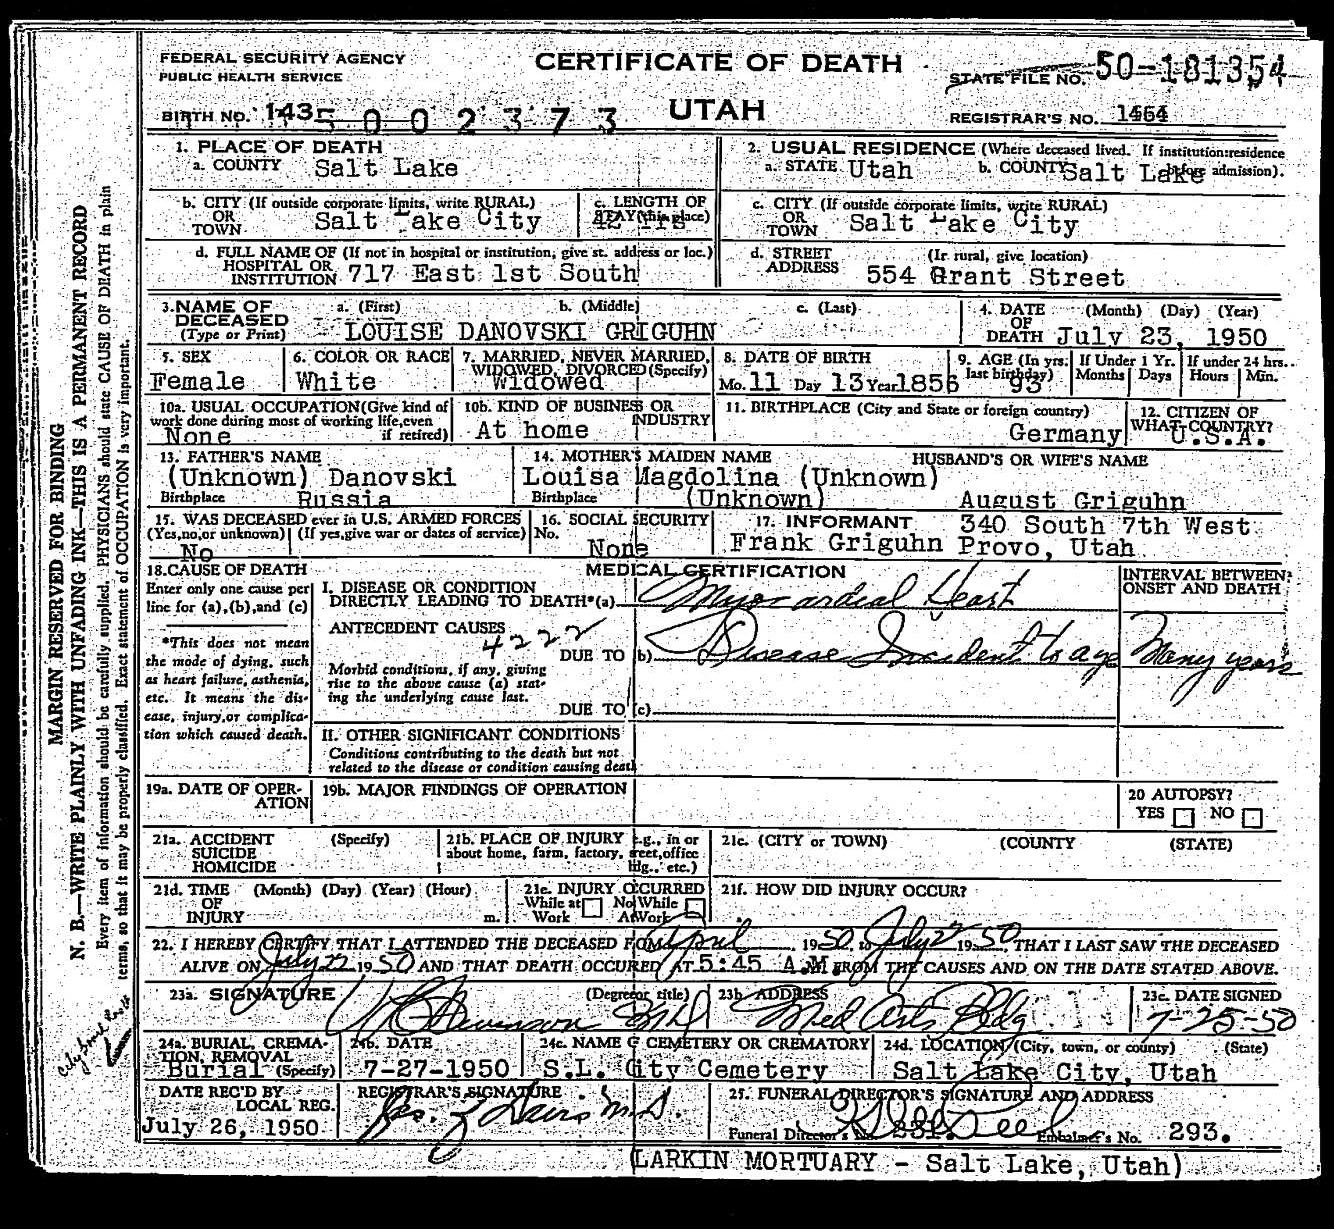 FEDERAL SECURITY AGENCY
PUBLIC HEALTH SERVICE
CERTIFICATE OF DEATH
UTAH
STATE FILE NO. 50-181354
BIRTH NO. 143 5002373
REGISTRAR'S NO. 1464
1. PLACE OF DEATH
a. COUNTY Salt Lake
2. USUAL RESIDENCE (Where deceased lived. If institution:residence before admission).
a. STATE Utah b. COUNTY Salt Lake
b. CITY (If outside corporate limits, write RURAL)
OR TOWN Salt Lake City
c. LENGTH OF STAY (this place) 42 Yrs
c. CITY (If outside corporate limits, write RURAL)
OR TOWN Salt Lake City
d. FULL NAME OF (If not in hospital or institution, give st. address or loc.)
HOSPITAL OR INSTITUTION 717 East 1st South
d. STREET ADDRESS (If rural, give location)
554 Grant Street
3. NAME OF DECEASED (Type or Print)
a. (First) b. (Middle) c. (Last)
LOUISE DANOVSKI GRIGUHN
4. DATE OF DEATH (Month) (Day) (Year)
July 23, 1950
5. SEX
Female
6. COLOR OR RACE
White
7. MARRIED, NEVER MARRIED, WIDOWED, DIVORCED (Specify)
Widowed
8. DATE OF BIRTH
Mo. 11 Day 13 Year 1856
9. AGE (In yrs. last birthday) 93
If Under 1 Yr. Months Days
If under 24 hrs. Hours Min.
10a. USUAL OCCUPATION (Give kind of work done during most of working life, even if retired)
None
10b. KIND OF BUSINESS OR INDUSTRY
At home
11. BIRTHPLACE (City and State or foreign country)
Germany
12. CITIZEN OF WHAT COUNTRY?
U.S.A.
13. FATHER'S NAME
(Unknown) Danovski
Birthplace Russia
14. MOTHER'S MAIDEN NAME
Louisa Magdolina (Unknown)
Birthplace (Unknown)
HUSBAND'S OR WIFE'S NAME
August Griguhn
15. WAS DECEASED ever in U.S. ARMED FORCES
(Yes, no, or unknown) (If yes, give war or dates of service)
No
16. SOCIAL SECURITY No.
None
17. INFORMANT 340 South 7th West
Frank Griguhn Provo, Utah
18. CAUSE OF DEATH
Enter only one cause per line for (a), (b), and (c)
*This does not mean the mode of dying, such as heart failure, asthenia, etc. It means the disease, injury, or complication which caused death.
MEDICAL CERTIFICATION
INTERVAL BETWEEN ONSET AND DEATH
I. DISEASE OR CONDITION DIRECTLY LEADING TO DEATH*(a) Myocardial Heart
ANTECEDENT CAUSES 4222
DUE TO (b) Disease Incident to age Many years
Morbid conditions, if any, giving rise to the above cause (a) stating the underlying cause last.
DUE TO (c)
II. OTHER SIGNIFICANT CONDITIONS
Conditions contributing to the death but not related to the disease or condition causing death
19a. DATE OF OPERATION
19b. MAJOR FINDINGS OF OPERATION
20 AUTOPSY?
YES NO
21a. ACCIDENT SUICIDE HOMICIDE (Specify)
21b. PLACE OF INJURY e.g., in or about home, farm, factory, street, office bldg., etc.)
21c. (CITY or TOWN) (COUNTY) (STATE)
21d. TIME OF INJURY (Month) (Day) (Year) (Hour) m.
21e. INJURY OCURRED
While at Work Not While At Work
21f. HOW DID INJURY OCCUR?
22. I HEREBY CERTIFY THAT I ATTENDED THE DECEASED FROM April 1950, to July 22 1950 THAT I LAST SAW THE DECEASED
ALIVE ON July 22 1950 AND THAT DEATH OCCURED AT 5:45 A.M. FROM THE CAUSES AND ON THE DATE STATED ABOVE.
23a. SIGNATURE (Degree or title)
M.D.
23b. ADDRESS
Med Arts Bldg
23c. DATE SIGNED
7-25-50
24a. BURIAL, CREMATION, REMOVAL (Specify)
Burial
24b. DATE
7-27-1950
24c. NAME OF CEMETERY OR CREMATORY
S.L. City Cemetery
24d. LOCATION (City, town, or county) (State)
Salt Lake City, Utah
DATE REC'D BY LOCAL REG.
July 26, 1950
REGISTRAR'S SIGNATURE
M.D.
25. FUNERAL DIRECTOR'S SIGNATURE AND ADDRESS
Funeral Director's No. 231. Embalmer's No. 293.
(LARKIN MORTUARY - Salt Lake, Utah)
MARGIN RESERVED FOR BINDING
N. B.—WRITE PLAINLY WITH UNFADING INK—THIS IS A PERMANENT RECORD
Every item of information should be carefully supplied. PHYSICIANS should state CAUSE OF DEATH in plain
terms, so that it may be properly classified. Exact statement of OCCUPATION is very important.